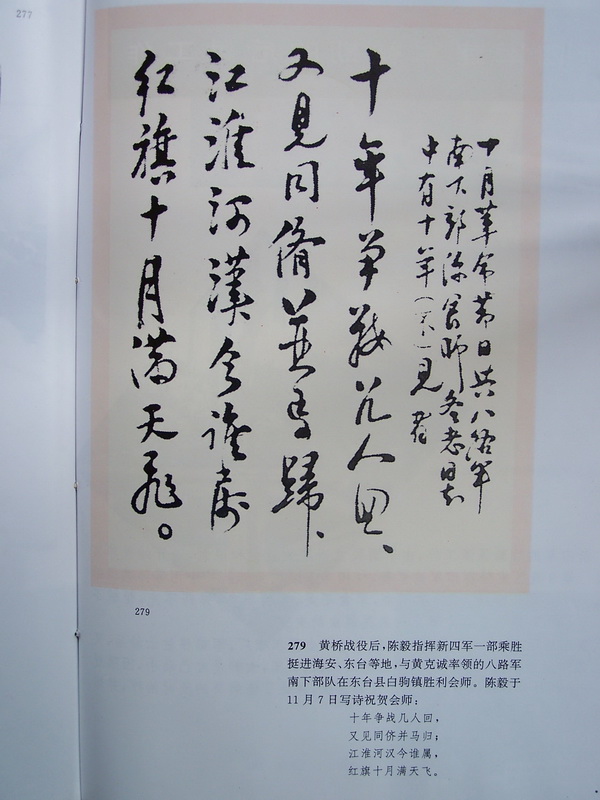 277
十月革命节日与八路军
南下部队会师老同志
中有十年見者
十年爭戰几人回、
又見同儕並馬歸、
江淮河漢今誰屬
红旗十月满天飛。
279
279 黄桥战役后，陈毅指挥新四军一部乘胜
挺进海安、东台等地，与黄克诚率领的八路军
南下部队在东台县白驹镇胜利会师。陈毅于
11月7日写诗祝贺会师：
十年争战几人回，
又见同侪并马归；
江淮河汉今谁属，
红旗十月满天飞。